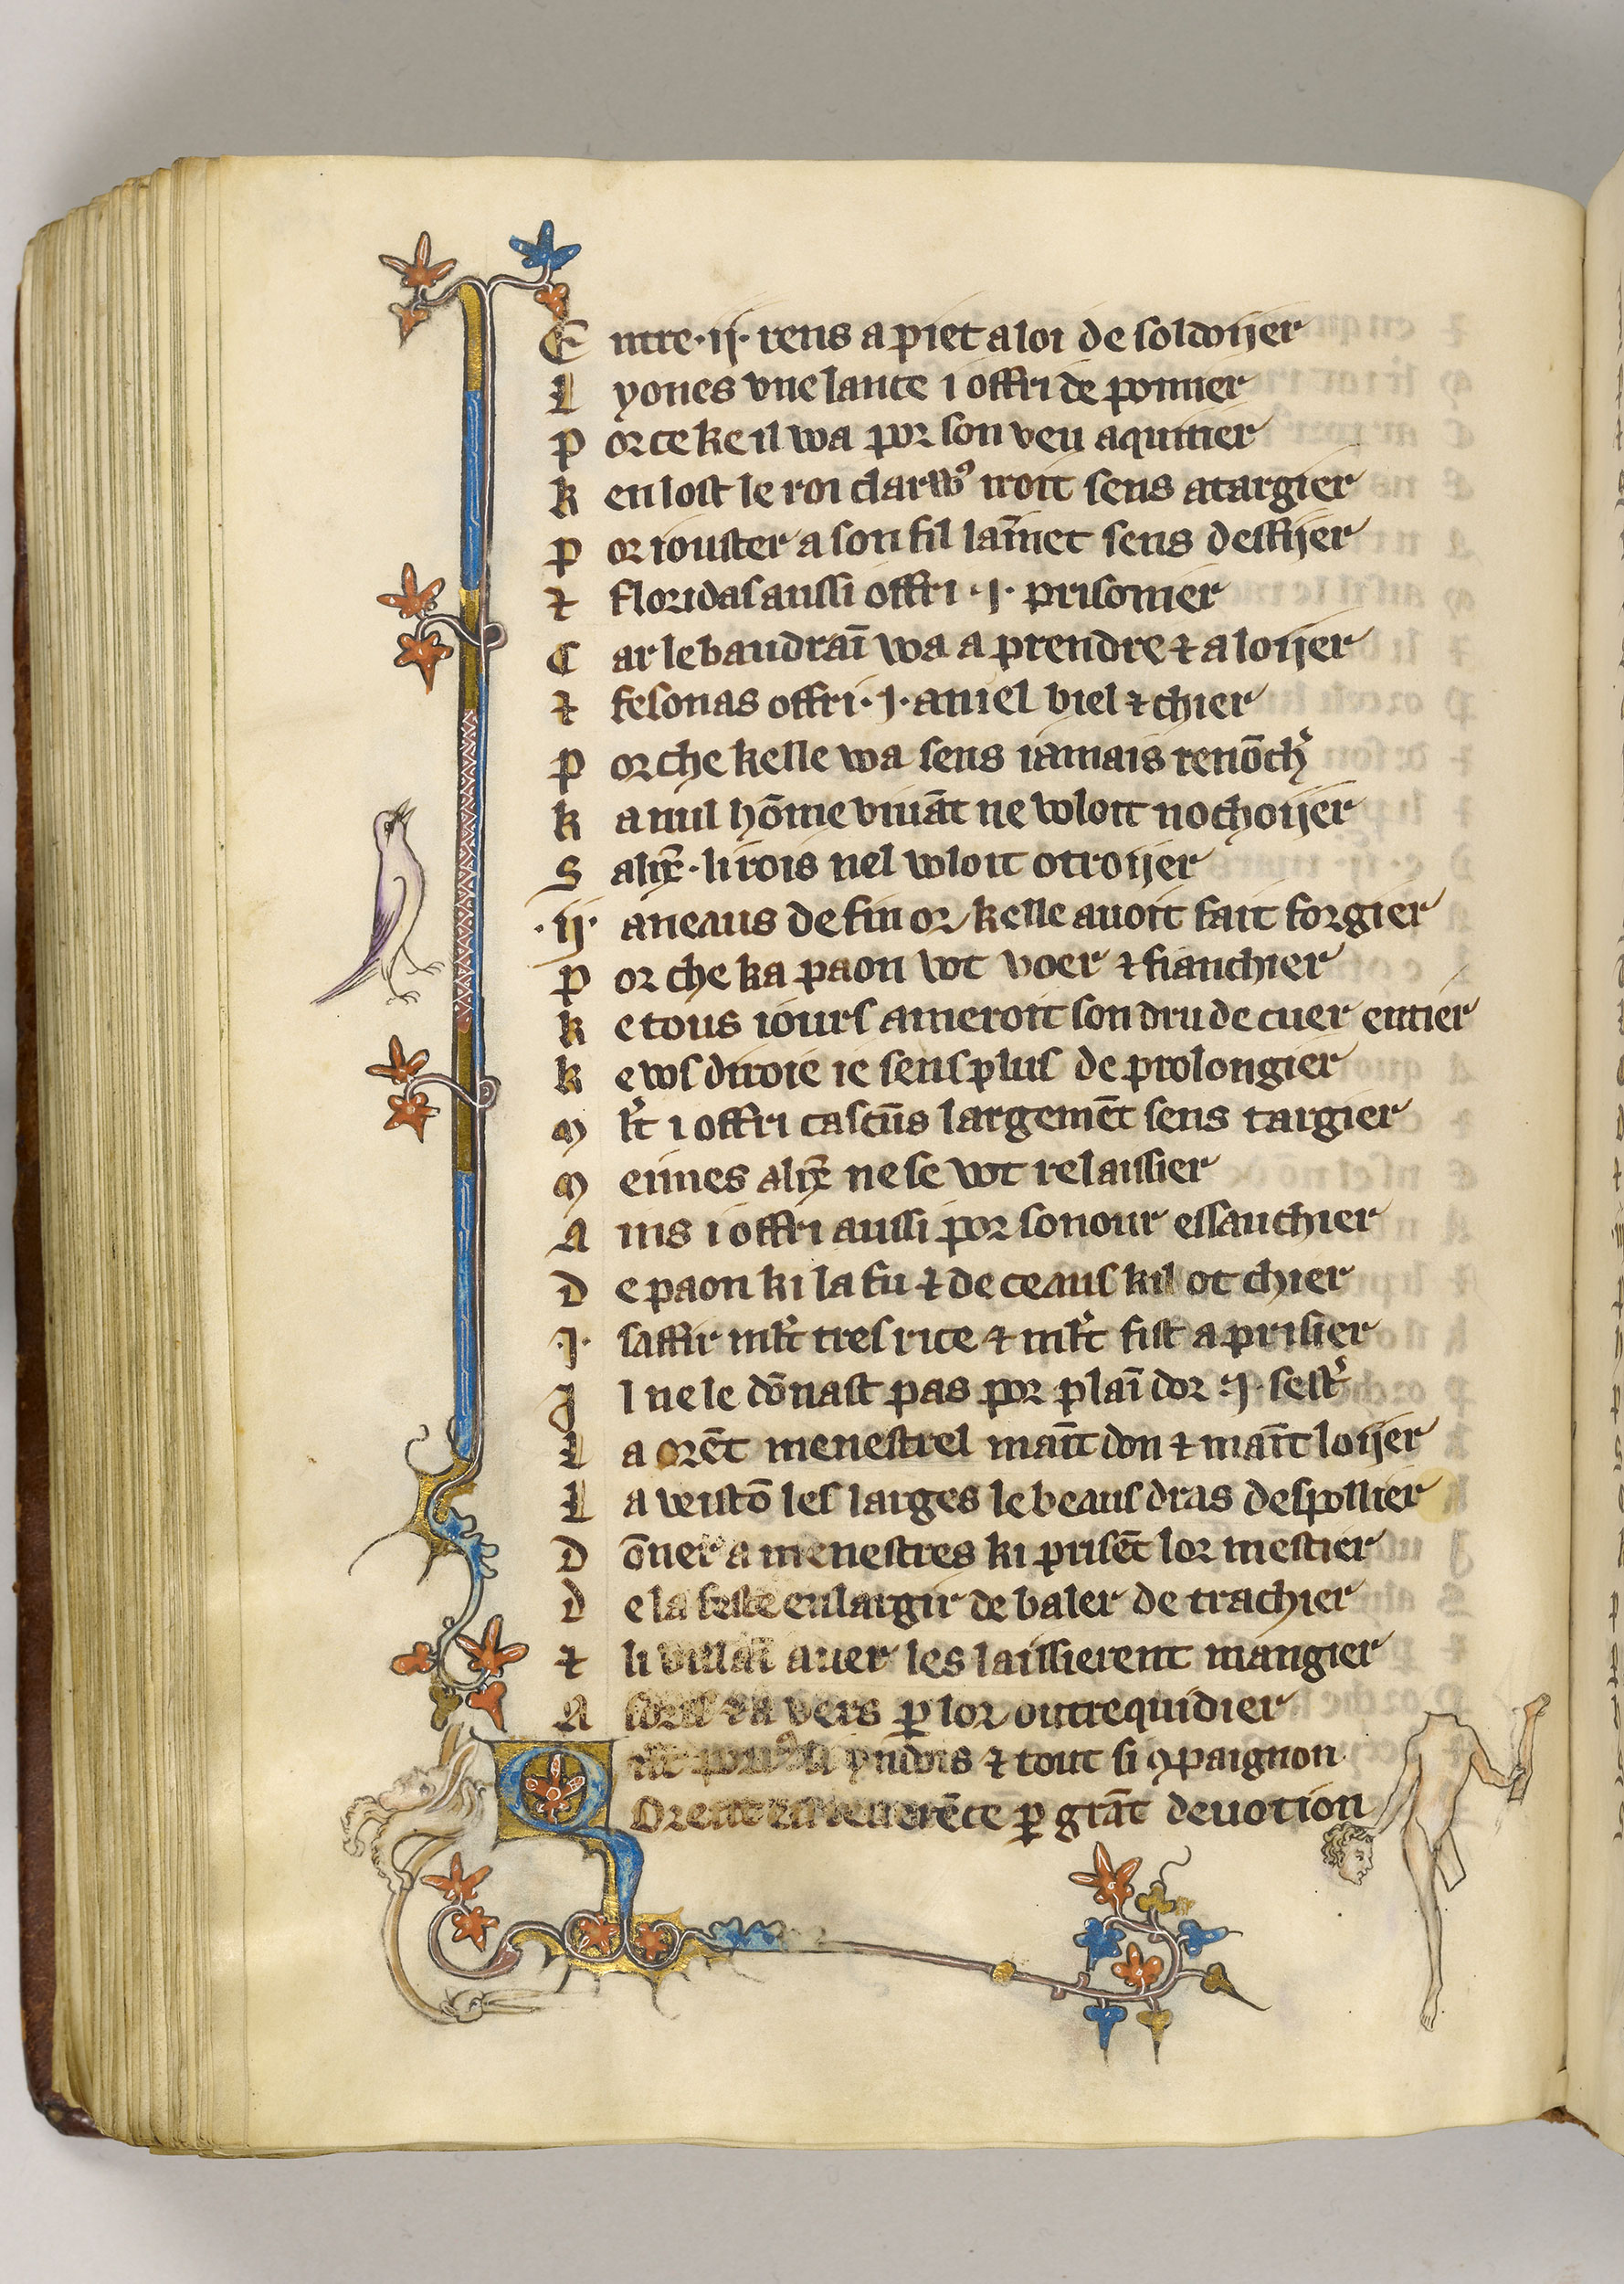 E ntre ·ij· rens a piet a loi de soldoijer
L yones vne lance i offri de pomier
P or ce ke il wa por son veu aquitier
K en lost le roi clarw9 iroit sens atargier
P or iouster a son fil lainet sens deffijer
⁊ floridas aussi offri ·j· prisonier
C ar le baudraī wa a prendre ⁊ a loijer
⁊ fesonas offri ·j· aniel biel ⁊ chier
P or che kelle wa sens iamais renōch
K a nul hōme viuāt ne woloit nochoijer
S alix̄ li rois nel woloit otroijer
·ij· aneaus de fin or kelle auoit fait forgier
P or che ka paon vot voer ⁊ fianchier
K e tous iours ameroit son dru de cuer entier
K e vos diroie ie sens plus de prolongier
M lt i offri cascūs largemēt sens targier
M eimes alix̄ ne se vot relaissier
A ins i offri aussi por sonour essauchier
D e paon ki la fu ⁊ de ceaus kil ot chier
·j· saffir mlt tres rice ⁊ mlt fist a prisier
J l ne le dōnast pas por plaī dor ·j· sest
L a orēt menestrel maīt don ⁊ maīt loijer
L a veist ō les larges le beaus dras despollier
D ōner a menestres ki prisēt lor mestier
D e la feste enlargir de baler de trachier
⁊ li auer les laissierent mangier
A vers p̱ lor outrequidier
⁊ tout si ꝯpaignon
p̱ grāt deuotion